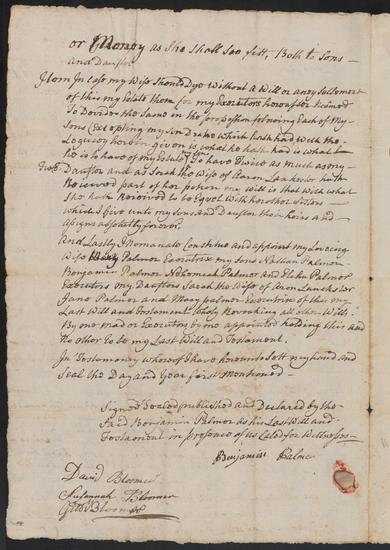 or Money as She Shall See fitt, Both to Sons
and Daughter
Item In Case my Wife Should Dye Without A Will or aney Settlement
of this my Estate Then for my Executors hereafter Named
To Devide the Same in the proporsion following Each of My
Sons Excepting my son which hath had with the
Legucey herein given is what he hath had is what
he is to have of my Estate my Sons To have Twice as much as my
Daughters and as Sarah the Wife of Aaron Lankester hath
Received part of her portion my will is that With what
She hath Received to be Equel With her other Sisters
which I Give unto my Sons and Daughters their heirs and
asigns absolutly forever
And Lastly I Nomanate Constitue and appoint my Loveing
Wife Mary Palmer Executrix my Sons Nathan Palmer
Benjamin Palmer Nehemiah Palmer and Elihu Palmer
Executors my Daughters Sarah the Wife of Aron Lanckester
Jane Palmer and Mary palmer Executrixe of this my
Last Will and Testament Wholy Revoaking all other Wills
By me mad or Executors by me appointed holding this and
No other to be my Last Will and Testament.
In Testomoney whereof I have hereunto Sett my hand and
Seal the Day and Year first Mentioned
Signed Sealed published and Declared by the
Said Benjamin Palmer as his Last Will and
Testament in presence of us Called for Wittnesses
Benjamin Palmer
David Bloomer
Susannah Bloomer
Gilbt Bloomer